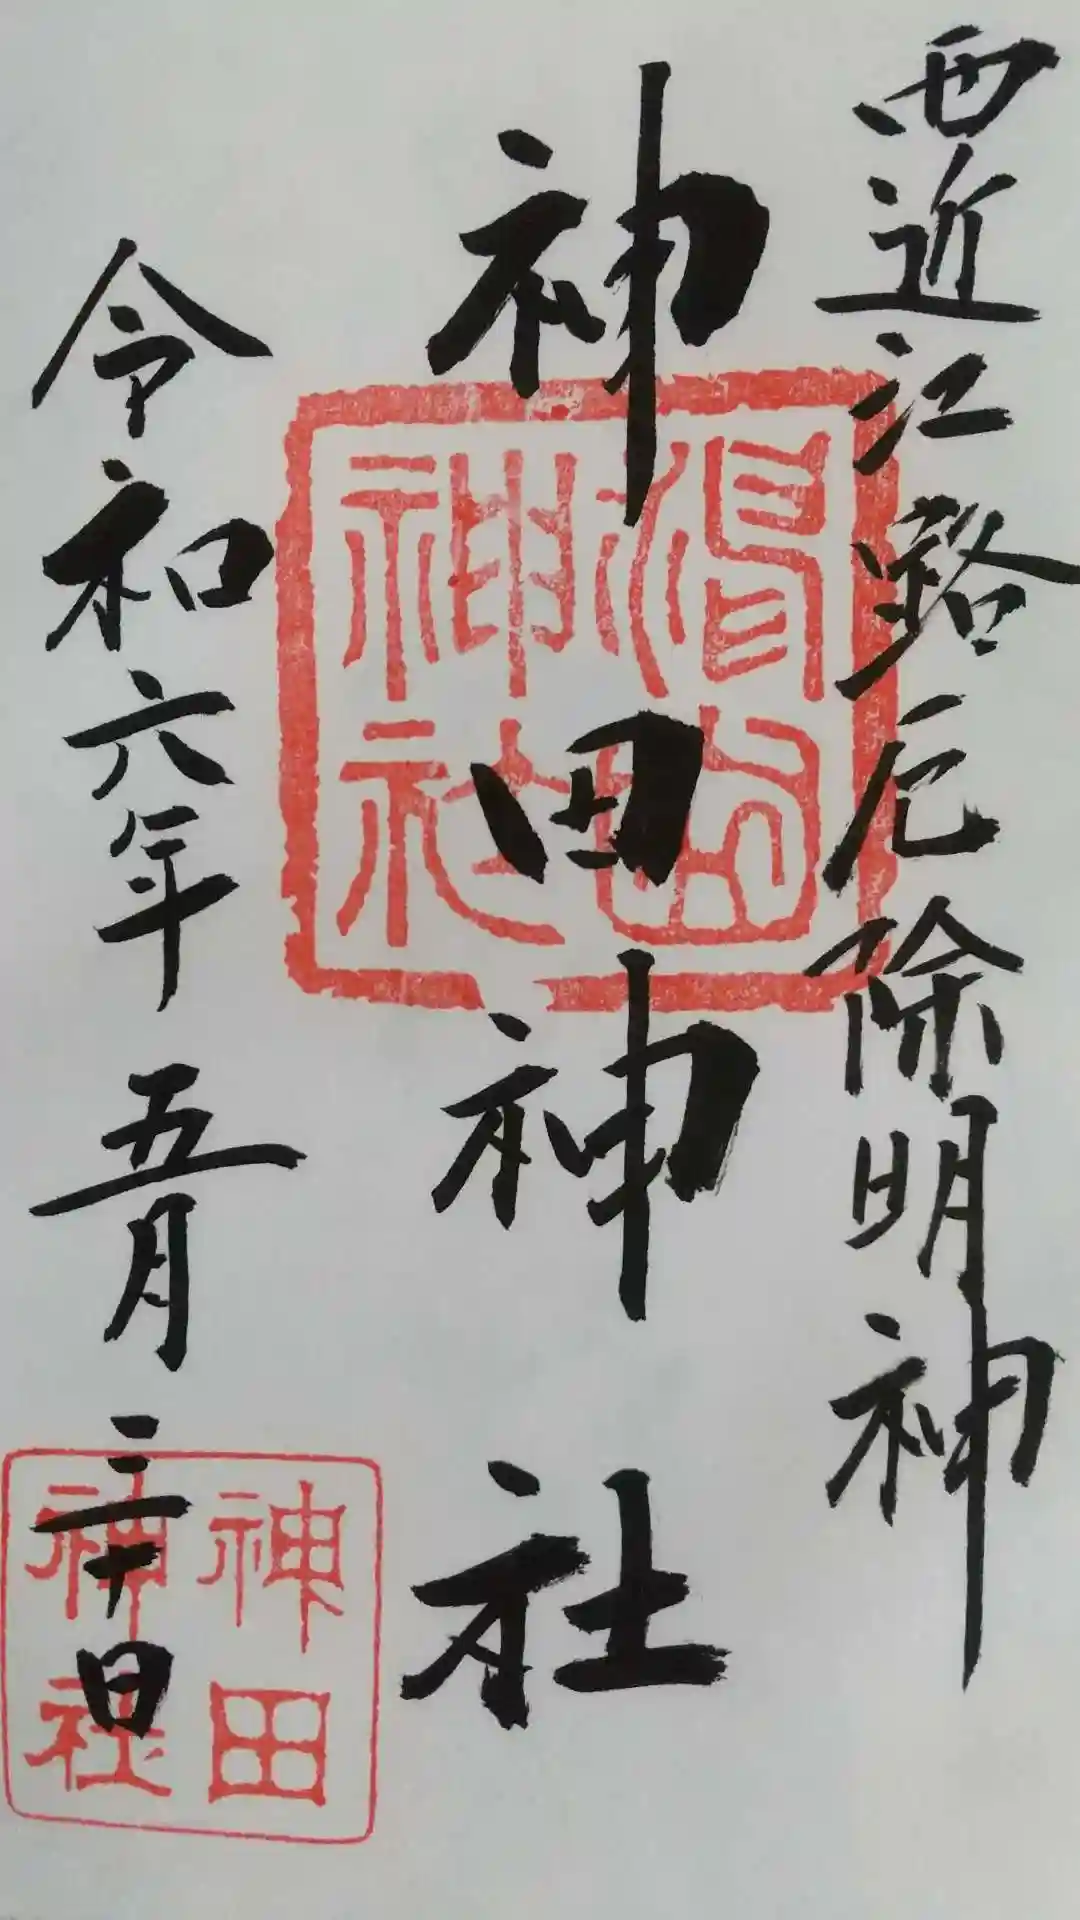 西近江路厄除明神
神田神社
令和六年五月三十日
神社
神田
神社